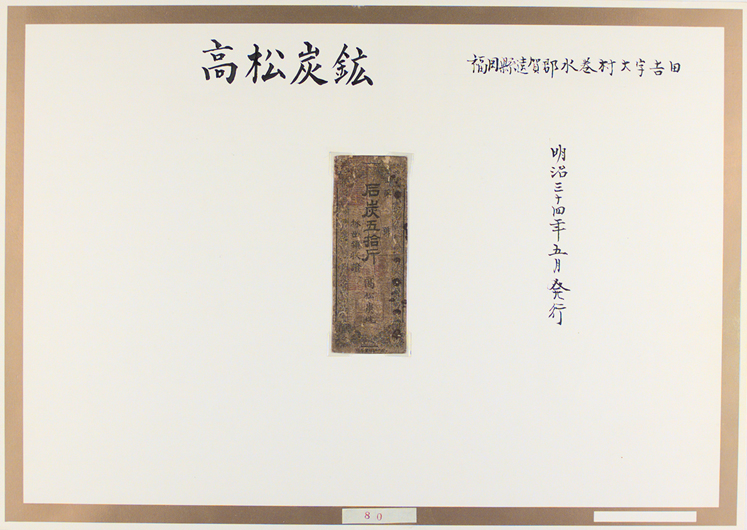 高松炭鉱
福岡縣遠賀郡水巻村大字吉田
明治三十四年五月発行
石炭五拾斤
高松炭坑
80